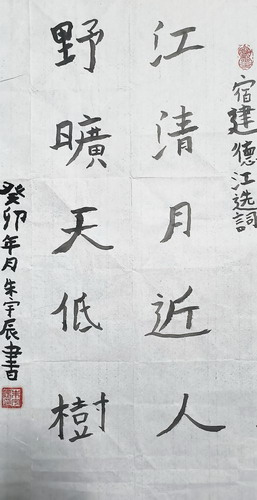 宿建德江选詞
江清月近人
野曠天低樹
癸卯年月朱宇辰書